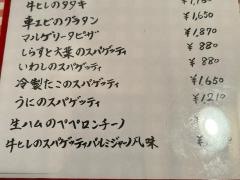 牛ヒレのタタキ
車エビのグラタン ¥1,650
マルゲリータピザ ¥1,870
しらすと大葉のスパゲッティ ¥880
いわしのスパゲッティ ¥880
冷製たこのスパゲッティ ¥1,650
うにのスパゲッティ ¥1,210
生ハムのペペロンチーノ
牛ヒレのスパゲッティパルミジャーノ風味